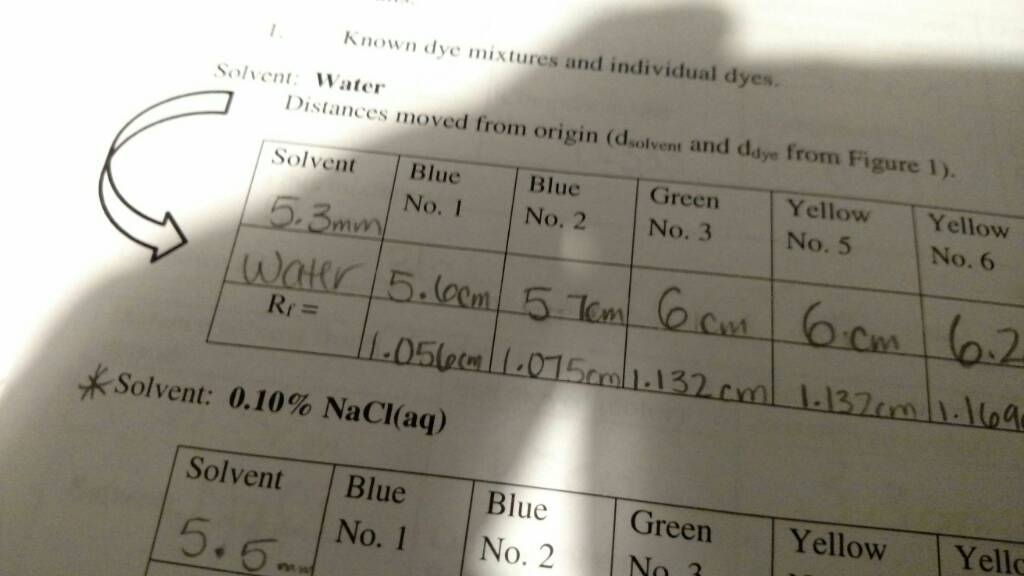 1. Known dye mixtures and individual dyes.
Solvent: Water
Distances moved from origin (dsolvent and ddye from Figure 1).
Solvent Blue No. 1 Blue No. 2 Green No. 3 Yellow No. 5 Yellow No. 6
5.3mm
Water 5.6cm 5.7cm 6cm 6.cm 6.2
Rf = 1.056cm 1.075cm 1.132cm 1.132cm 1.169
*Solvent: 0.10% NaCl(aq)
Solvent Blue No. 1 Blue No. 2 Green No. 3 Yellow
5.5mm